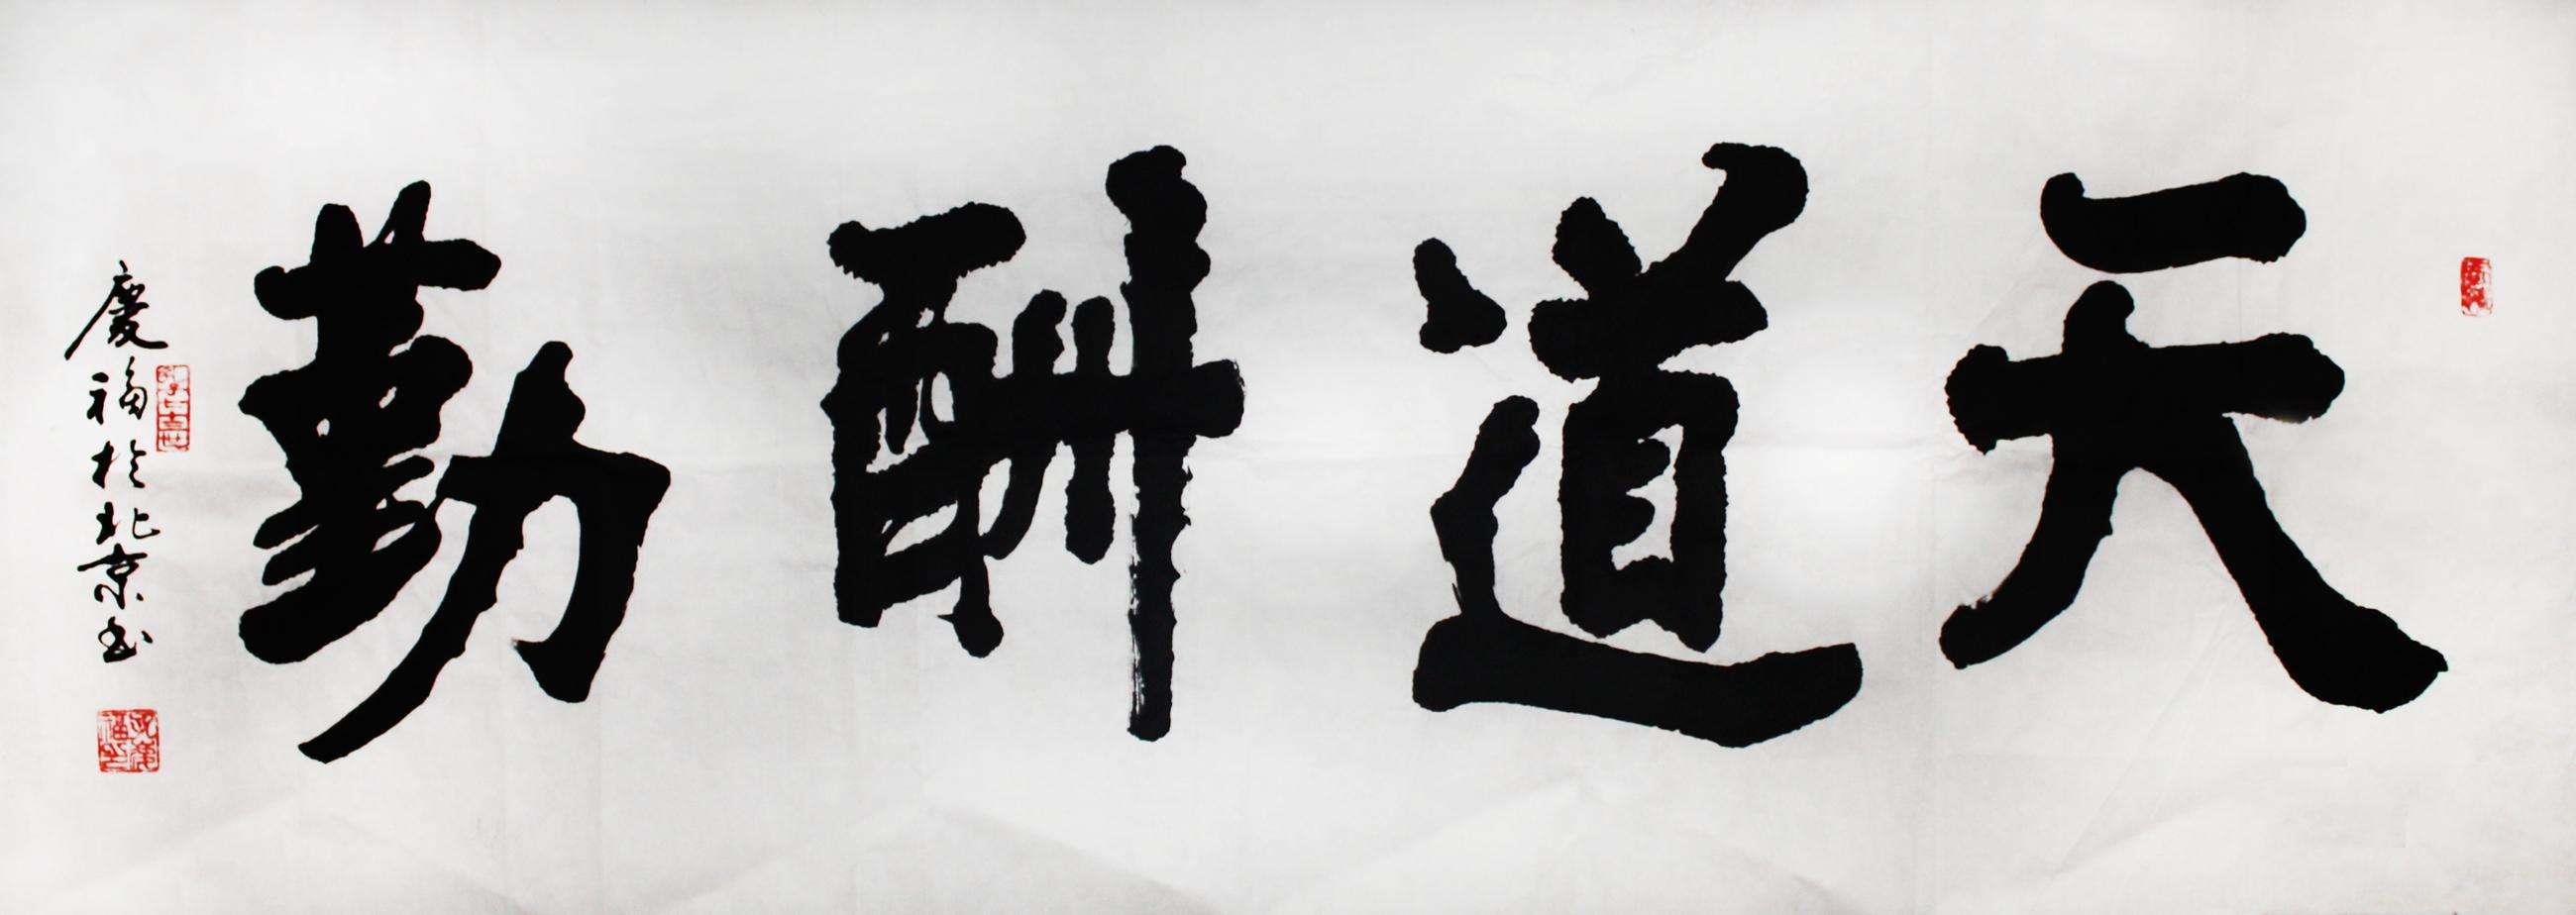 天道酬勤
慶福於北京书